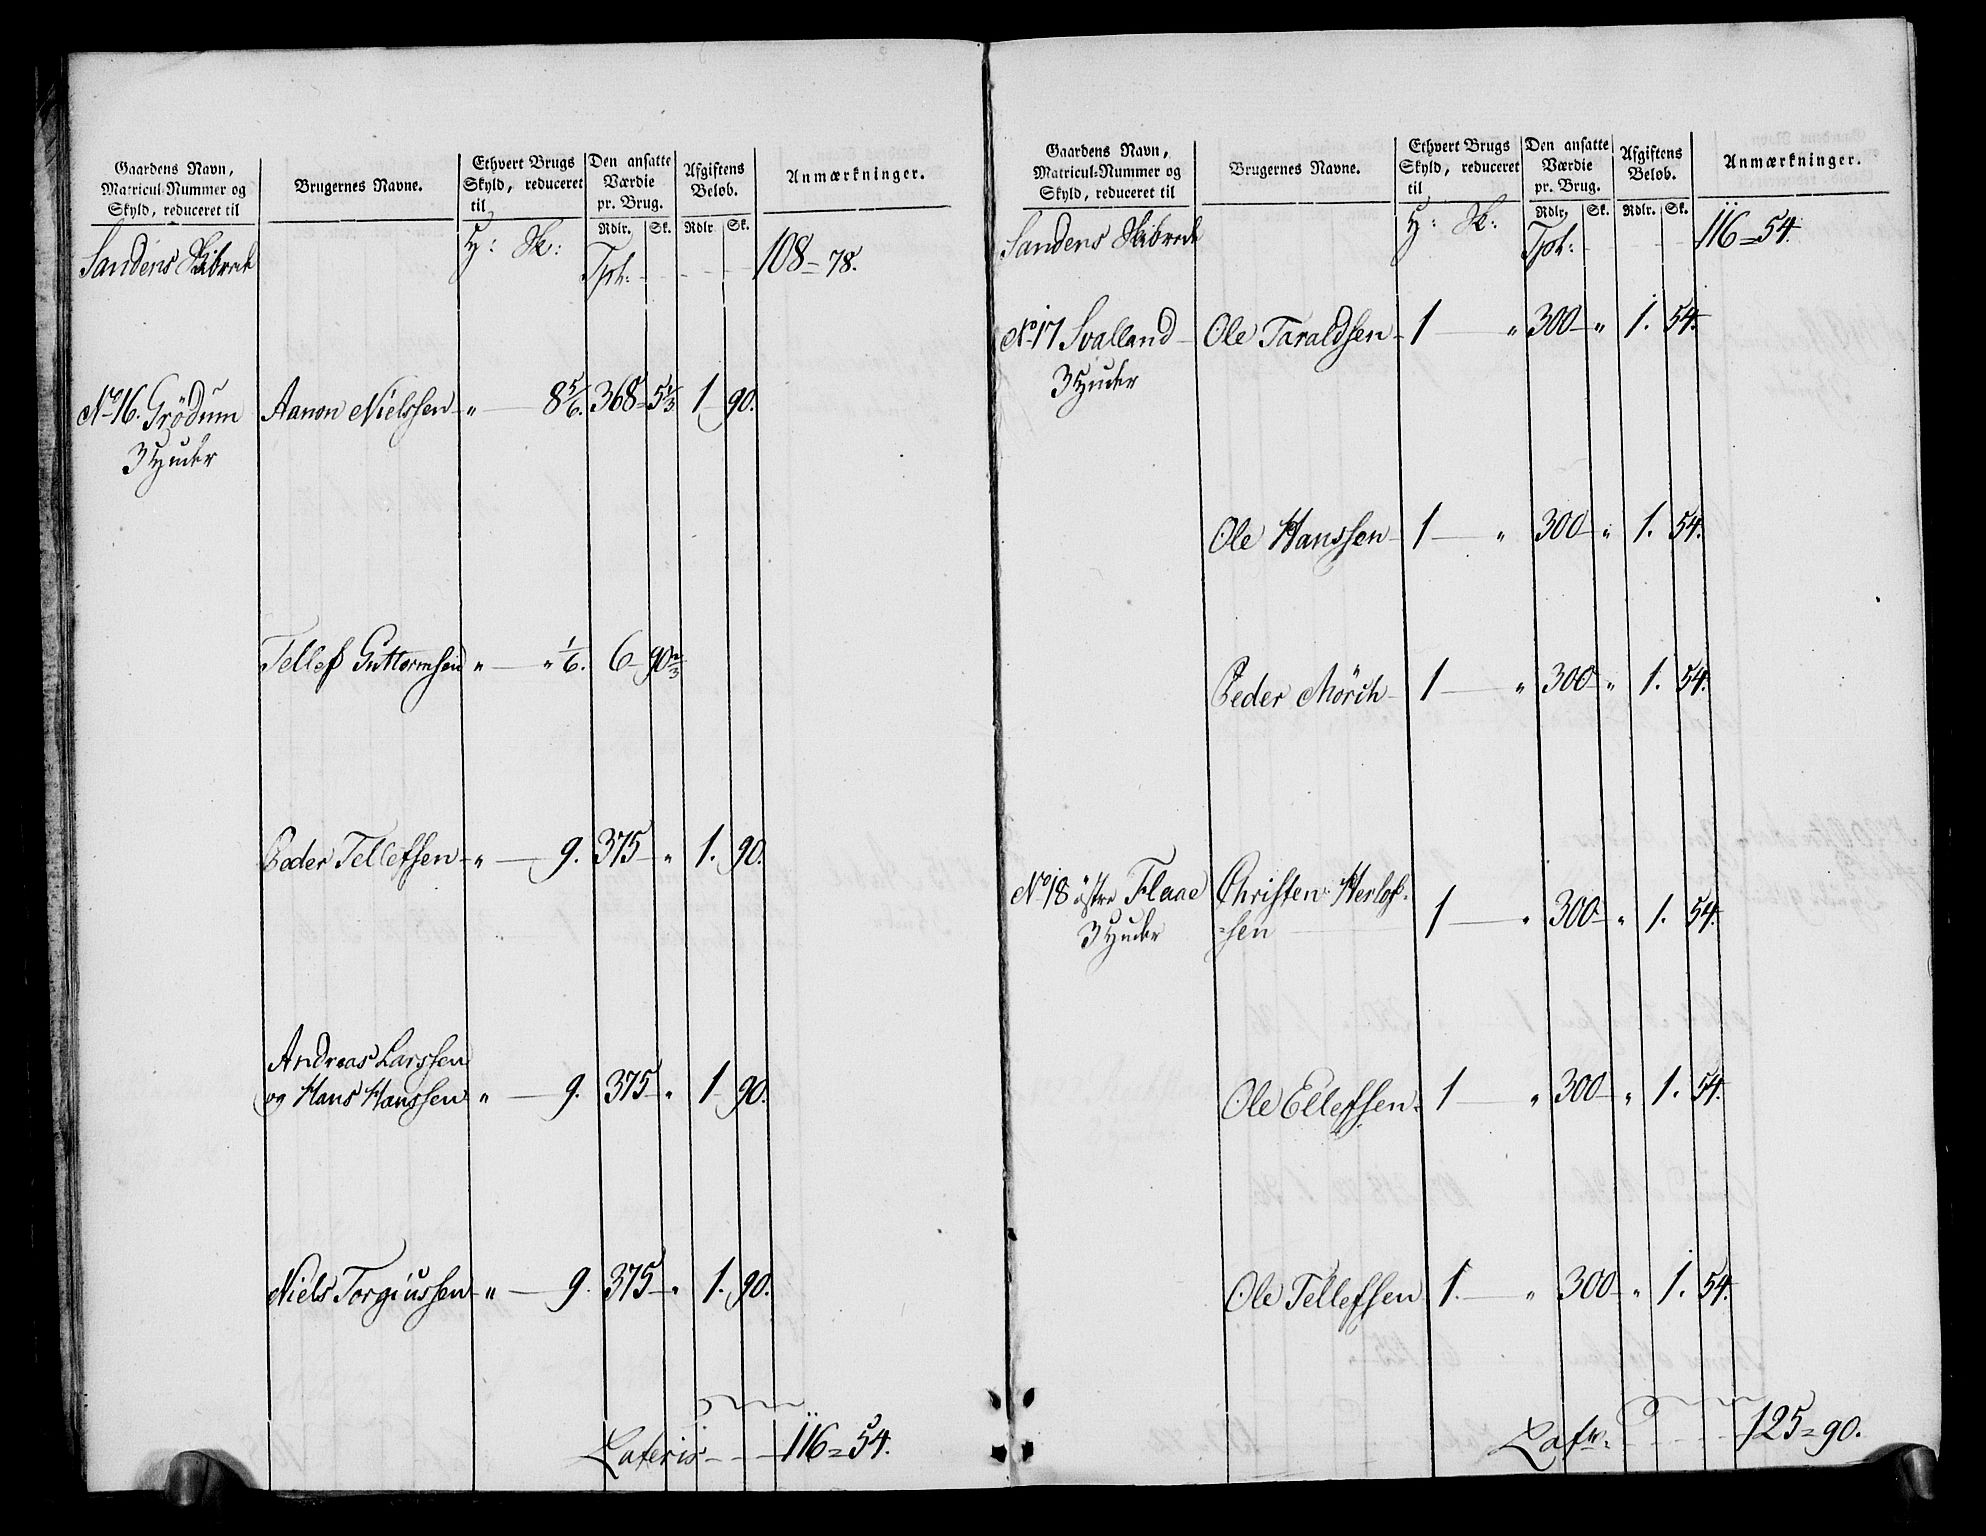 Gaardens Navn,
Matricul-Nummer og
Skyld, reduceret til
Brugernes Navne.
Ethvert Brugs
Skyld, reduceret
til
Den ansatte
Værdie
pr. Brug.
Rdlr. Sk.
Afgiftens
Beløb.
Rdlr. Sk.
Anmærkninger.
Sandens Skibrede H: Sk: Tpt: - - - - 108 = 78.
No 16. Grödum Aanon Nielssen - " — 8 5/6. 368 - 5 1/3 1 - 90.
3 Huder
Tellef Guttormsen " — " 1/6. 6 - 90 2/3
Peder Tellefsen - " — 9. 375 - " 1. 90.
Andreas Larssen
og Hans Hanssen " — 9. 375 - " 1 - 90.
Niels Torgiussen - " — 9. 375 - " 1. 90.
Lateris - - - 116 = 54.
Gaardens Navn,
Matricul-Nummer og
Skyld, reduceret til
Brugernes Navne.
Ethvert Brugs
Skyld, reduceret
til
Den ansatte
Værdie
pr. Brug.
Rdlr. Sk.
Afgiftens
Beløb.
Rdlr. Sk.
Anmærkninger.
Sandens Skibrede H: Sk: Tpt: - - - - 116 = 54.
No 17 Svalland - Ole Taraldsen - 1 — " 300 - " 1. 54.
3 Huder
Ole Hanssen - 1 — " 300 - " 1. 54.
Peder Mörch - 1 — " 300 - " 1. 54.
No 18 östre Flaae Christen Herlof-
3 Huder =sen — 1 — " 300 - " 1. 54.
Ole Ellefsen. 1 — " 300 - " 1. 54.
Ole Tellefsen 1. — " 300 - " 1. 54.
Lat: - - - - 125 = 90.